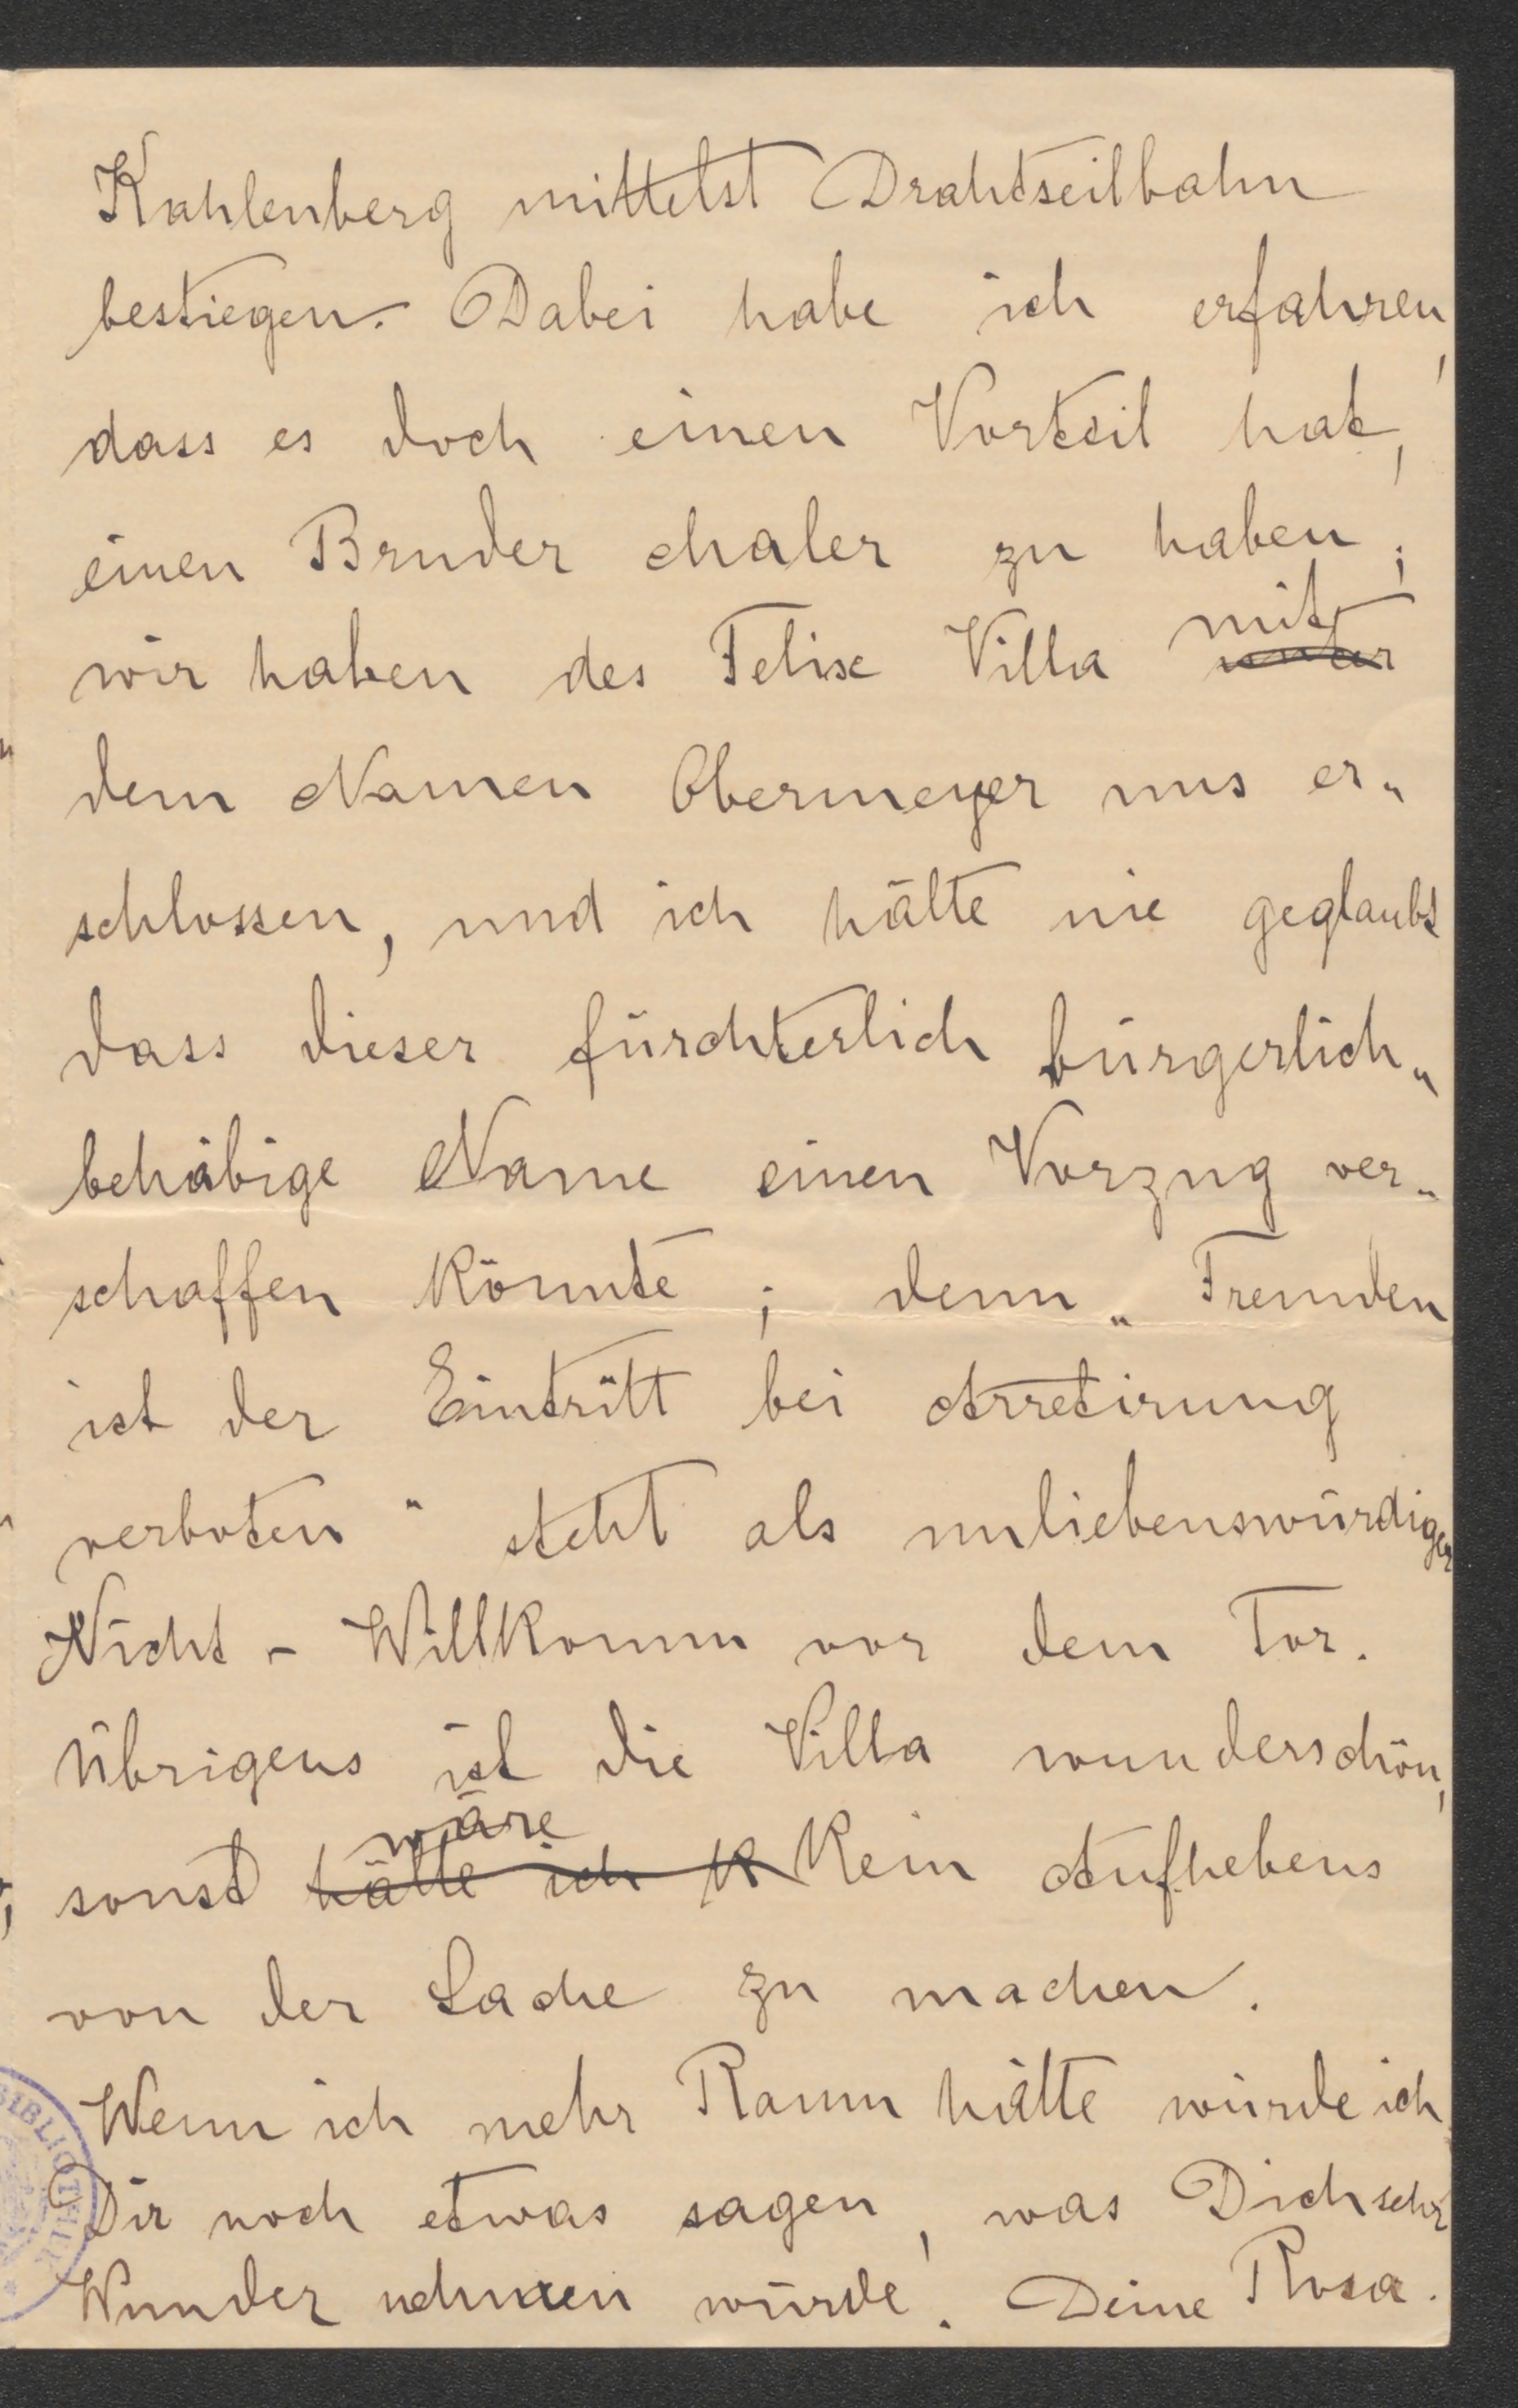 Kahlenberg mittelst Drahtseilbahn
bestiegen. Dabei habe ich erfahren,
dass es doch einen Vorteil hat,
einen Bruder Maler zu haben;
mit
wir haben des Felix Villa unter
dem Namen Obermeyer uns er„
schlossen, und ich hätte nie geglaubt
dass dieser fürchterlich bürgerlich„
behäbige Name einen Vorzug ver„
schaffen könnte; denn „Fremden
ist der Eintritt bei Arretirung
verboten" steht als unliebenswürdiger
Nicht-Willkomm vor dem Tor.
Übrigens ist die Villa wunderschön,
wäre
sonst hätte ich k kein Aufhebens
von der Sache zu machen.
Wenn ich mehr Raum hätte würde ich
Dir noch etwas sagen, was Dich sehr
Wunder nehmen würde. Deine Rosa.
BIBLIOTHEK